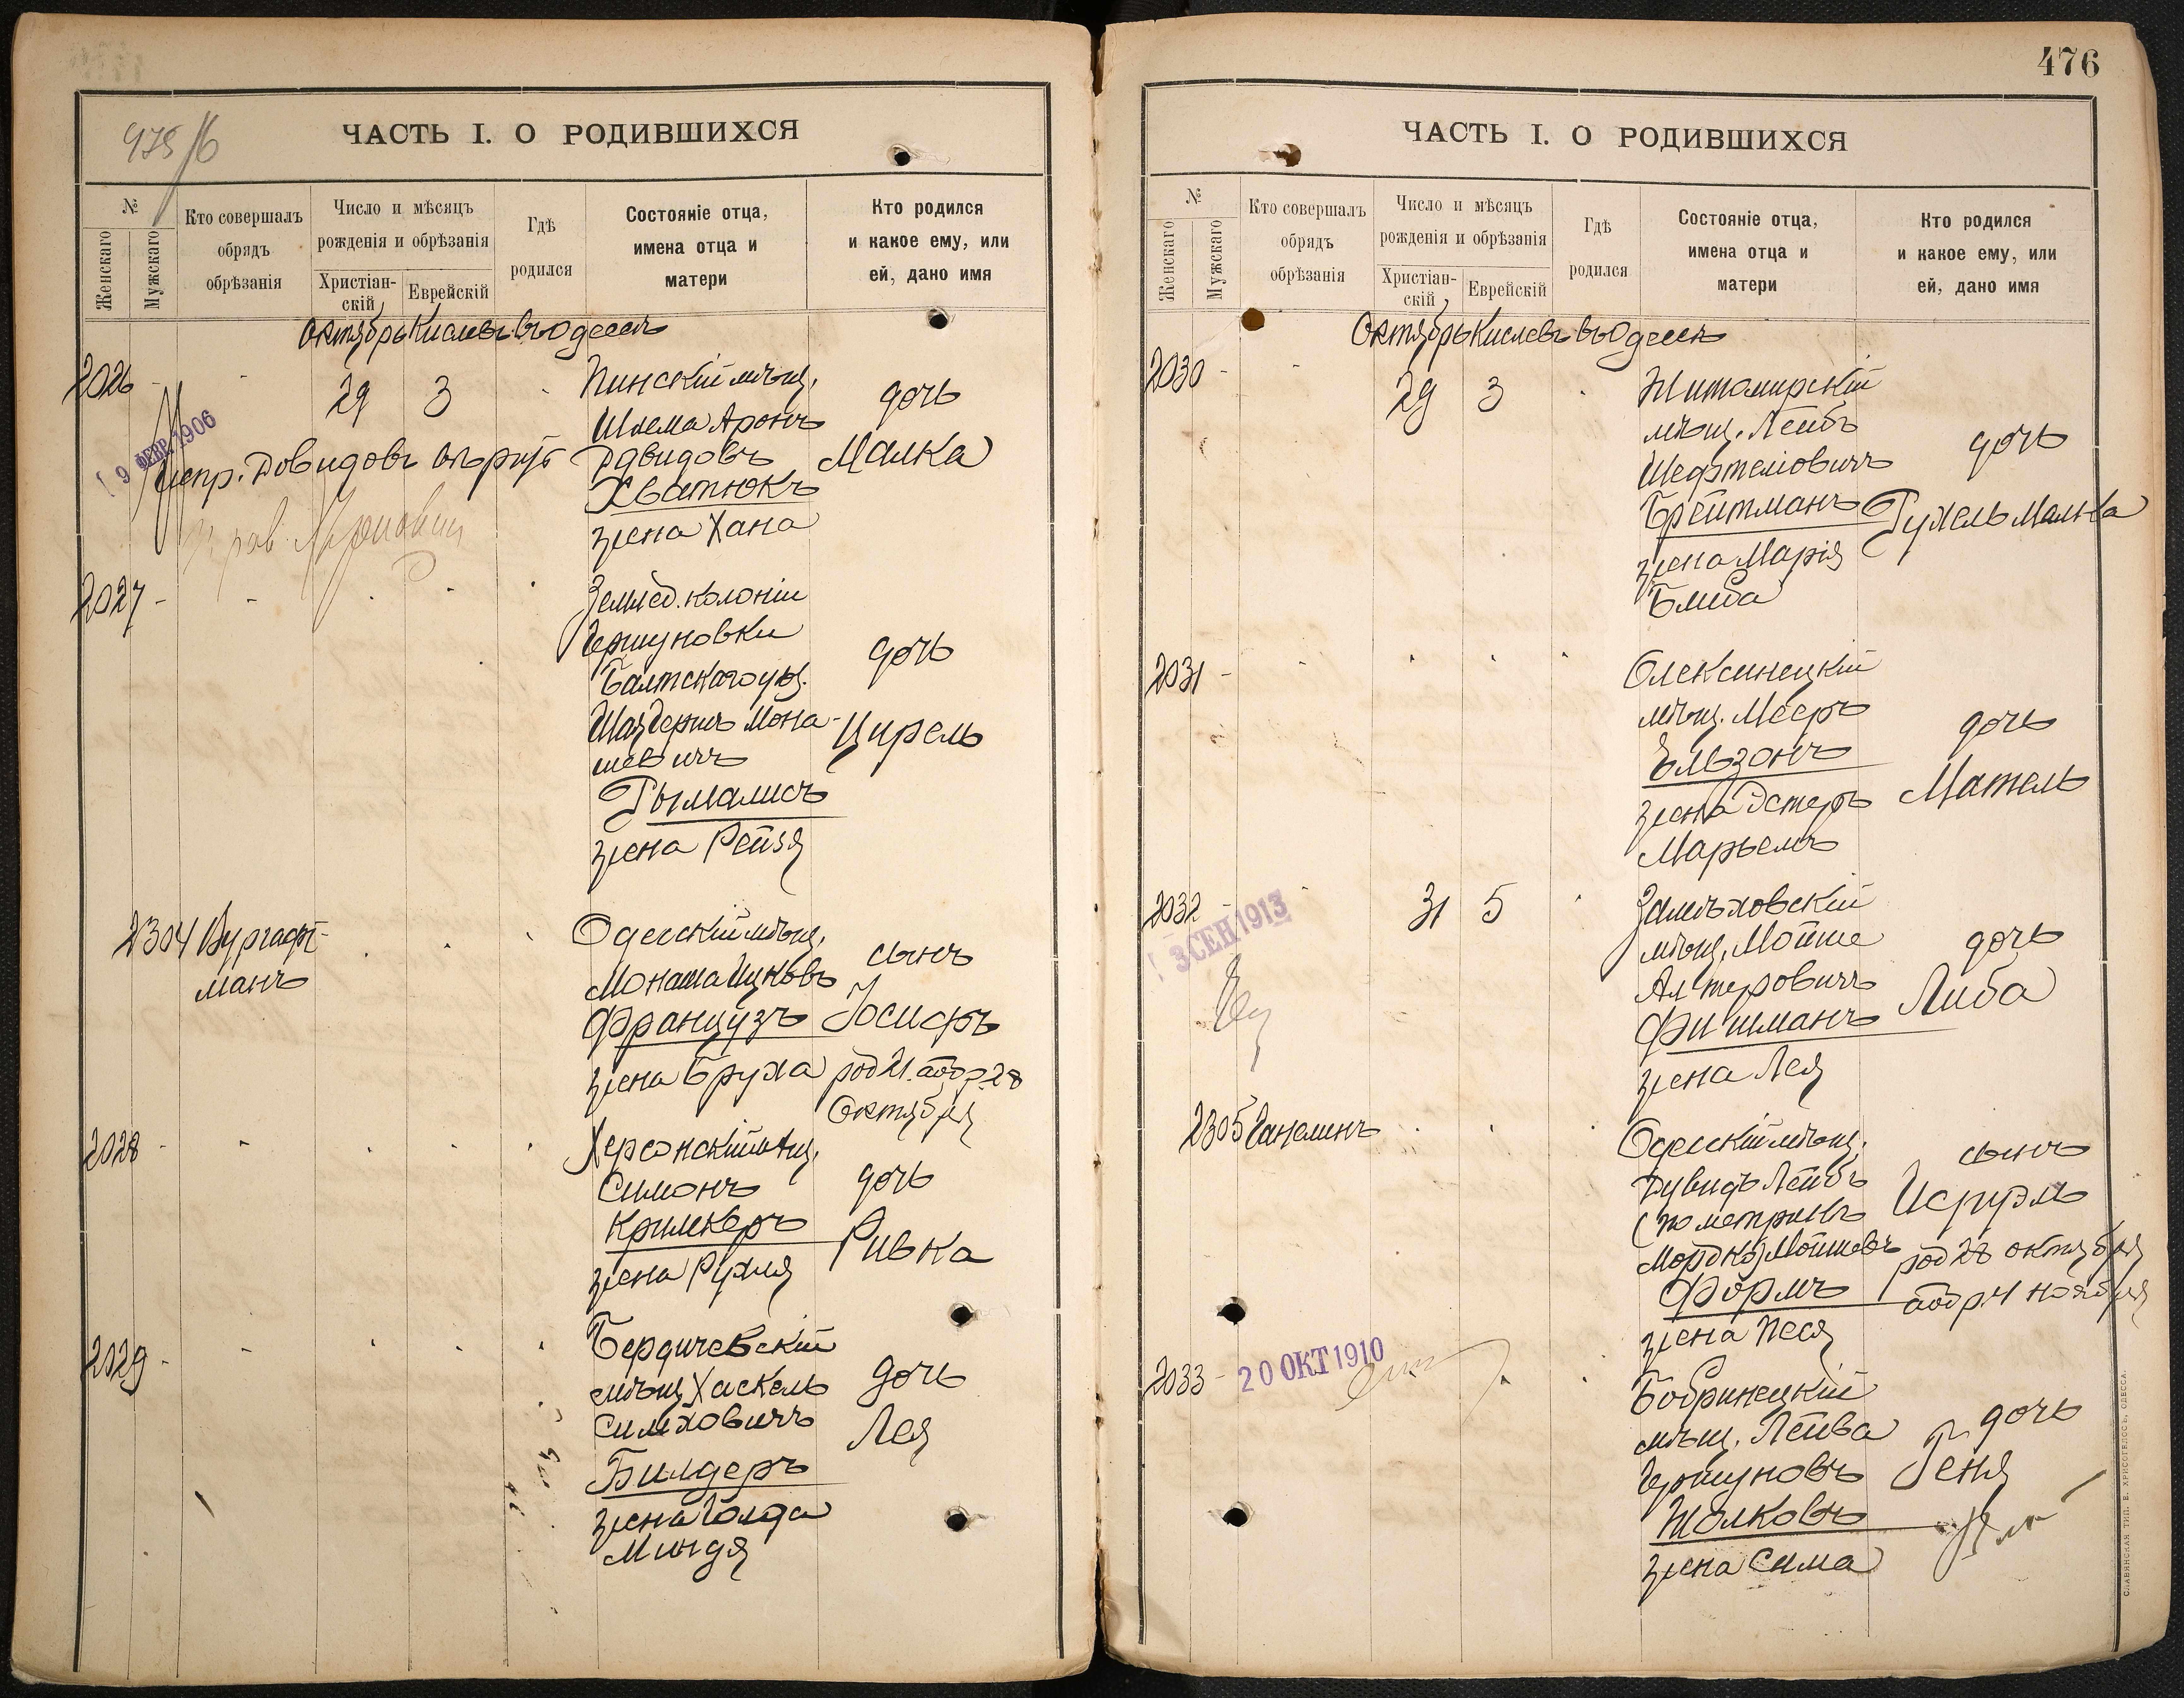 975/6
ЧАСТЬ I. О РОДИВШИХСЯ
№
Женскаго
Мужскаго
Кто совершалъ
обрядъ
обрѣзанія
Число и мѣсяцъ
рожденія и обрѣзанія
Христіан-
скій
Еврейскій
Гдѣ
родился
Состояніе отца,
имена отца и
матери
Кто родился
и какое ему, или
ей, дано имя
Октябрь Кислевъ въ Одессѣ
2026 - - 29 3 Пинскій мѣщ.
Шлема Аронъ
Давидовъ
Хватюкъ
жена Хана
дочь
Малка
9 ФЕВР. 1906
испр. Довидовъ
2027 - - Землед. колоніи
Гершуновки
Балтскаго уѣз.
Мона-
шевичъ
Тымалисъ
жена Рейзя
дочь
Цирель
2304 Вургафт-
манъ
Одесскій мѣщ.
Монаша Ицковъ
Французъ
жена Бруха
сынъ
Іосифъ
род 21. а обр. 28
Октября
2028 - - Херсонскій мѣщ.
Симонъ
Кримкеръ
жена Рухля
дочь
Ривка
2029 - - Бердичевскій
мѣщ. Хаскель
Симховичъ
Билдеръ
жена Голда
Миндя
дочь
Лея
476
ЧАСТЬ I. О РОДИВШИХСЯ
№
Женскаго
Мужскаго
Кто совершалъ
обрядъ
обрѣзанія
Число и мѣсяцъ
рожденія и обрѣзанія
Христіан-
скій
Еврейскій
Гдѣ
родился
Состояніе отца,
имена отца и
матери
Кто родился
и какое ему, или
ей, дано имя
Октябрь Кислевъ въ Одессѣ
2030 - - 29 3 Житомирскій
мѣщ. Лейбъ
Шефтеліовичъ
Брейтманъ
жена Марія
Блиба
дочь
Рухель Малка
2031 - Олексинецкій
мѣщ. Мееръ
Ельзонъ
жена Эстеръ
Марьемъ
дочь
Мательь
2032 - 31 5 Замѣховскій
мѣщ. Мойше
Алтеровичъ
Фишманъ
жена Лея
дочь
Либа
3 СЕН 1913
2305 Ганелинъ
Одесскій мѣщ.
Дувидъ Лейбъ
(по метрикѣ
Мордко) Мошковъ
Формъ
жена Песя
сынъ
Исруэль
род 28 октября
а обр. 4 ноября
2033 - 20 ОКТ 1910
Бобринецкій
мѣщ. Лейва
Гершуновъ
Жолковъ
жена Сима
дочь
Геня
СЛАВЯНСКАЯ ТИП. Е. ХРИСОГЕЛОСЪ, ОДЕССА.